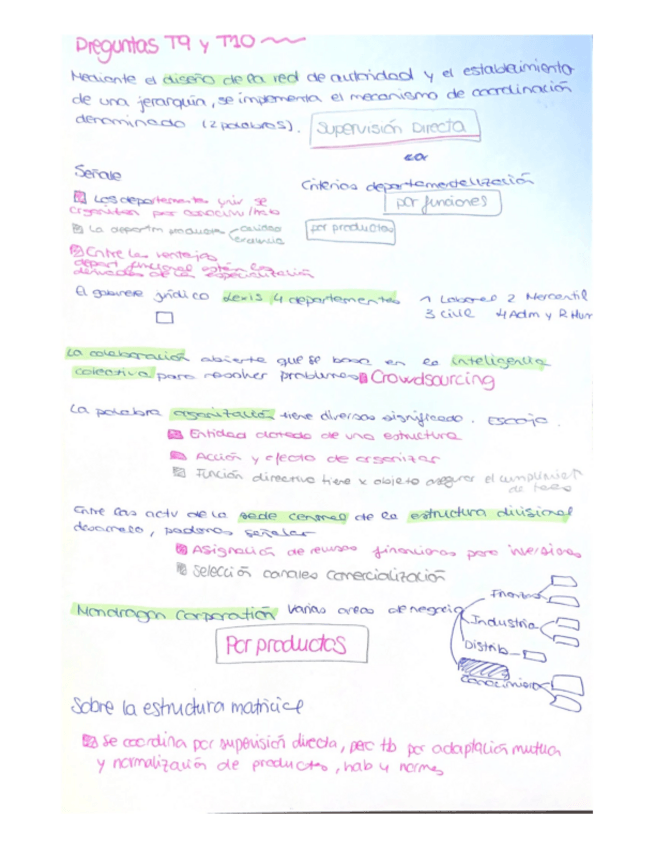 Preguntas T9 y T10
Mediante el diseño de la red de autoridad y el establecimiento
de una jerarquía, se implementa el mecanismo de coordinación
denominado (2 palabras). Supervisión Directa
Señale
Criterios departamentalización
por funciones
Los departamentos univ se
organizan por conocim/hab
La departm productos calidad
por productos
Entre las ventajas
depart funcional están las
derivadas de la especialización
El gabinete jurídico Lexis 4 departamentos 1 Laboral 2 Mercantil
3 Civil 4 Adm y R Hum
La colaboración abierta que se basa en la inteligencia
colectiva para resolver problemas Crowdsourcing
La palabra organización tiene diversos significado. Escoja.
Entidad dotada de una estructura
Acción y efecto de organizar
Función directiva tiene x objeto asegurar el cumplimient
de
Entre las actv de la sede central de la estructura divisional
desarrolla, podemos señalar
Asignación de recursos financieros para inversiones
Selección canales comercialización
Mondragon Corporation varias areas de negocio
Finanzas
Industria
Distrib
Por productos
Conocimiento
Sobre la estructura matricial
Se coordina por supervisión directa, pero tb por adaptación mutua
y normalización de productos, hab y normas